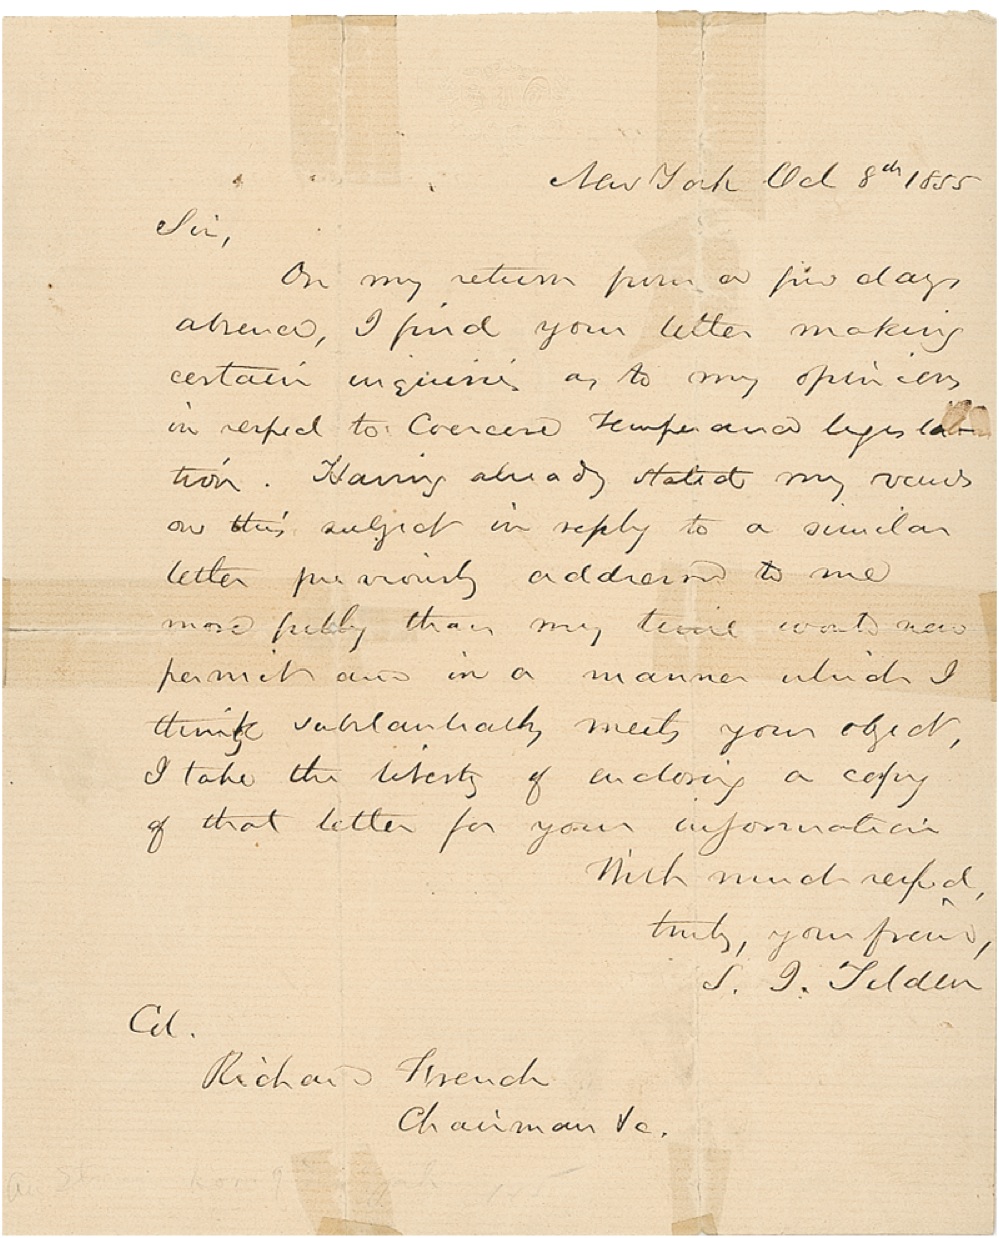 New York Oct 8th 1855
Sir,
On my return from a few days
absence, I find your letter making
certain inquiries as to my opinions
in respect to Coercive Temperance legisla
tion. Having already stated my views
on this subject in reply to a similar
letter previously addressed to me
more fully than my time would now
permit and in a manner which I
think substantially meets your object,
I take the liberty of enclosing a copy
of that letter for your information
With much respect,
truly, your friend,
S. J. Tilden
Col.
Richard French
Chairman &c.